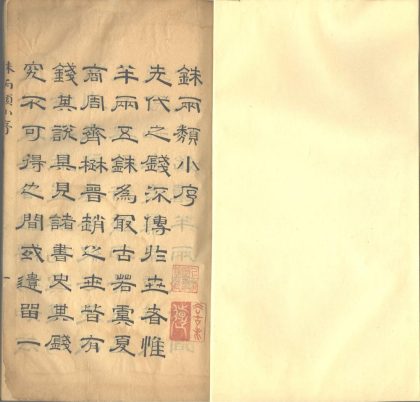 銖兩類小序
先代之錢深傳於世者惟
半兩五銖為最古若虞夏
商周齊楚晉趙之世皆有
錢其說具見諸書史其錢
究不可得之間或遺留一
銖兩類小序